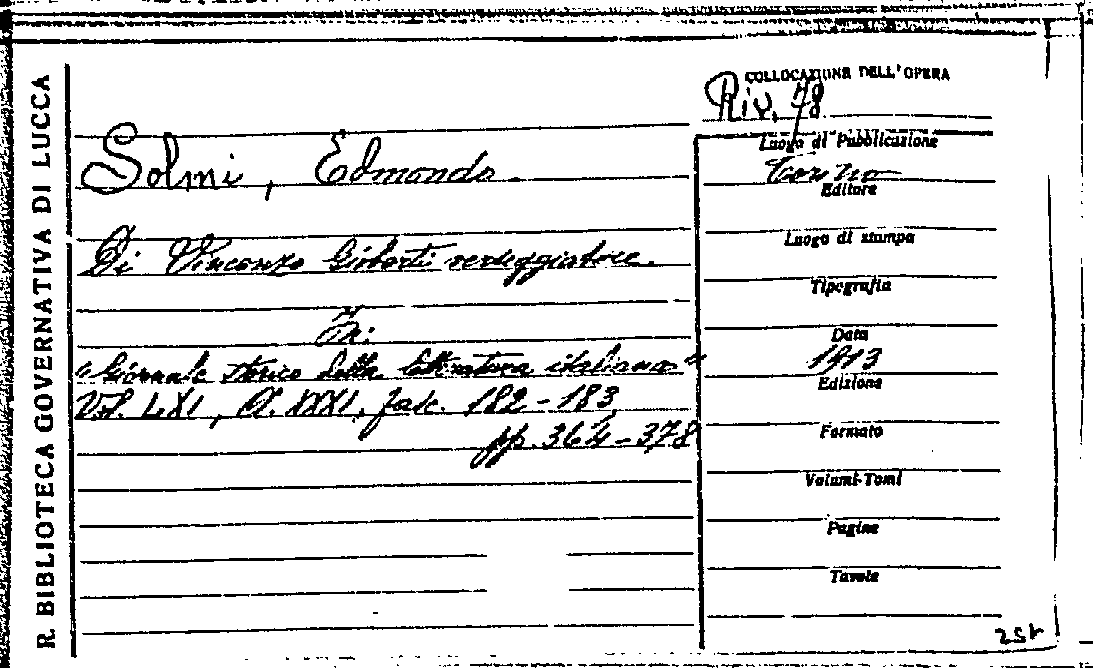 R. BIBLIOTECA GOVERNATIVA DI LUCCA
COLLOCAZIONE DELL'OPERA
Riv. 78
Solmi, Edmondo.
Di Vincenzo Gioberti verseggiatore.
In:
"Giornale storico della letteratura italiana"
Vol. LXI, A. XXXI, fasc. 182-183,
pp. 364-378
Luogo di Pubblicazione
Torino
Editore
Luogo di stampa
Tipografia
Data
1913
Edizione
Formato
Volumi-Tomi
Pagine
Tavole